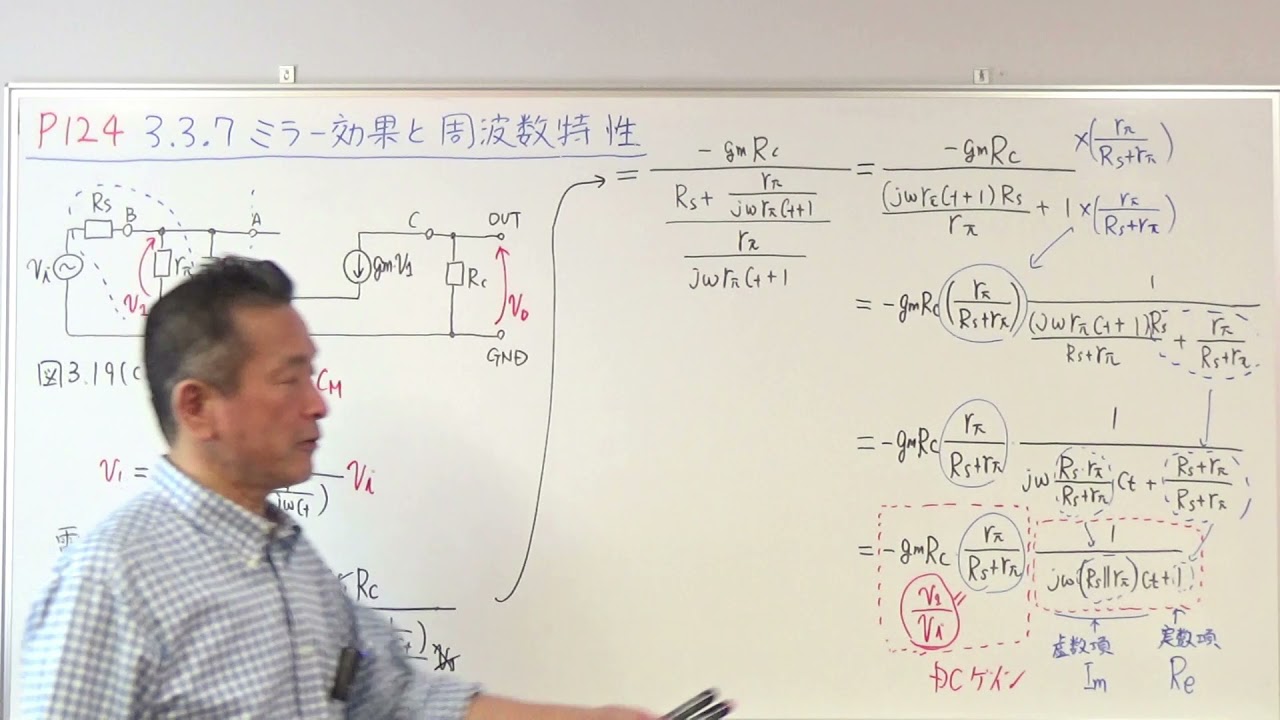 P124 3.3.7 ミラー効果と周波数特性
Rs B A C OUT
vi rπ gm·v1 Rc
v1 vo
GND
図3.19(c
CM
v1 = vi
jωCt)
Rc
= -gmRc / ((Rs + rπ/(jωrπCt+1)) / (rπ/(jωrπCt+1))) = -gmRc / ((jωrπCt+1)Rs/rπ + 1) ×(rπ/(Rs+rπ)) ×(rπ/(Rs+rπ))
= -gmRc (rπ/(Rs+rπ)) 1/((jωrπCt+1)Rs/(Rs+rπ) + rπ/(Rs+rπ))
= -gmRc rπ/(Rs+rπ) · 1/(jω Rs·rπ/(Rs+rπ) Ct + (Rs+rπ)/(Rs+rπ))
= -gmRc · rπ/(Rs+rπ) 1/(jω(Rs||rπ)Ct+1)
v1/vi
DCゲイン
虚数項 実数項
Im Re